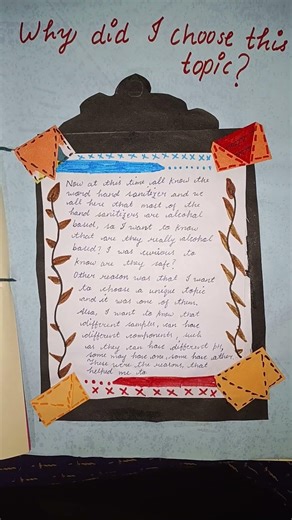 Why did I choose this
topic?
Now at this time all know the
word hand sanitizer and we
all here that most of the
hand sanitizers are alcohol
based, so I want to know
that are they really alcohol
based? I was curious to
know are they safe?
Other reason was that I want
to choose a unique topic
and it was one of them.
Also, I want to know that
different samples, can have
different components, such
as they can have different pH,
some may have one, some have other.
These were the reasons, that
helped me to